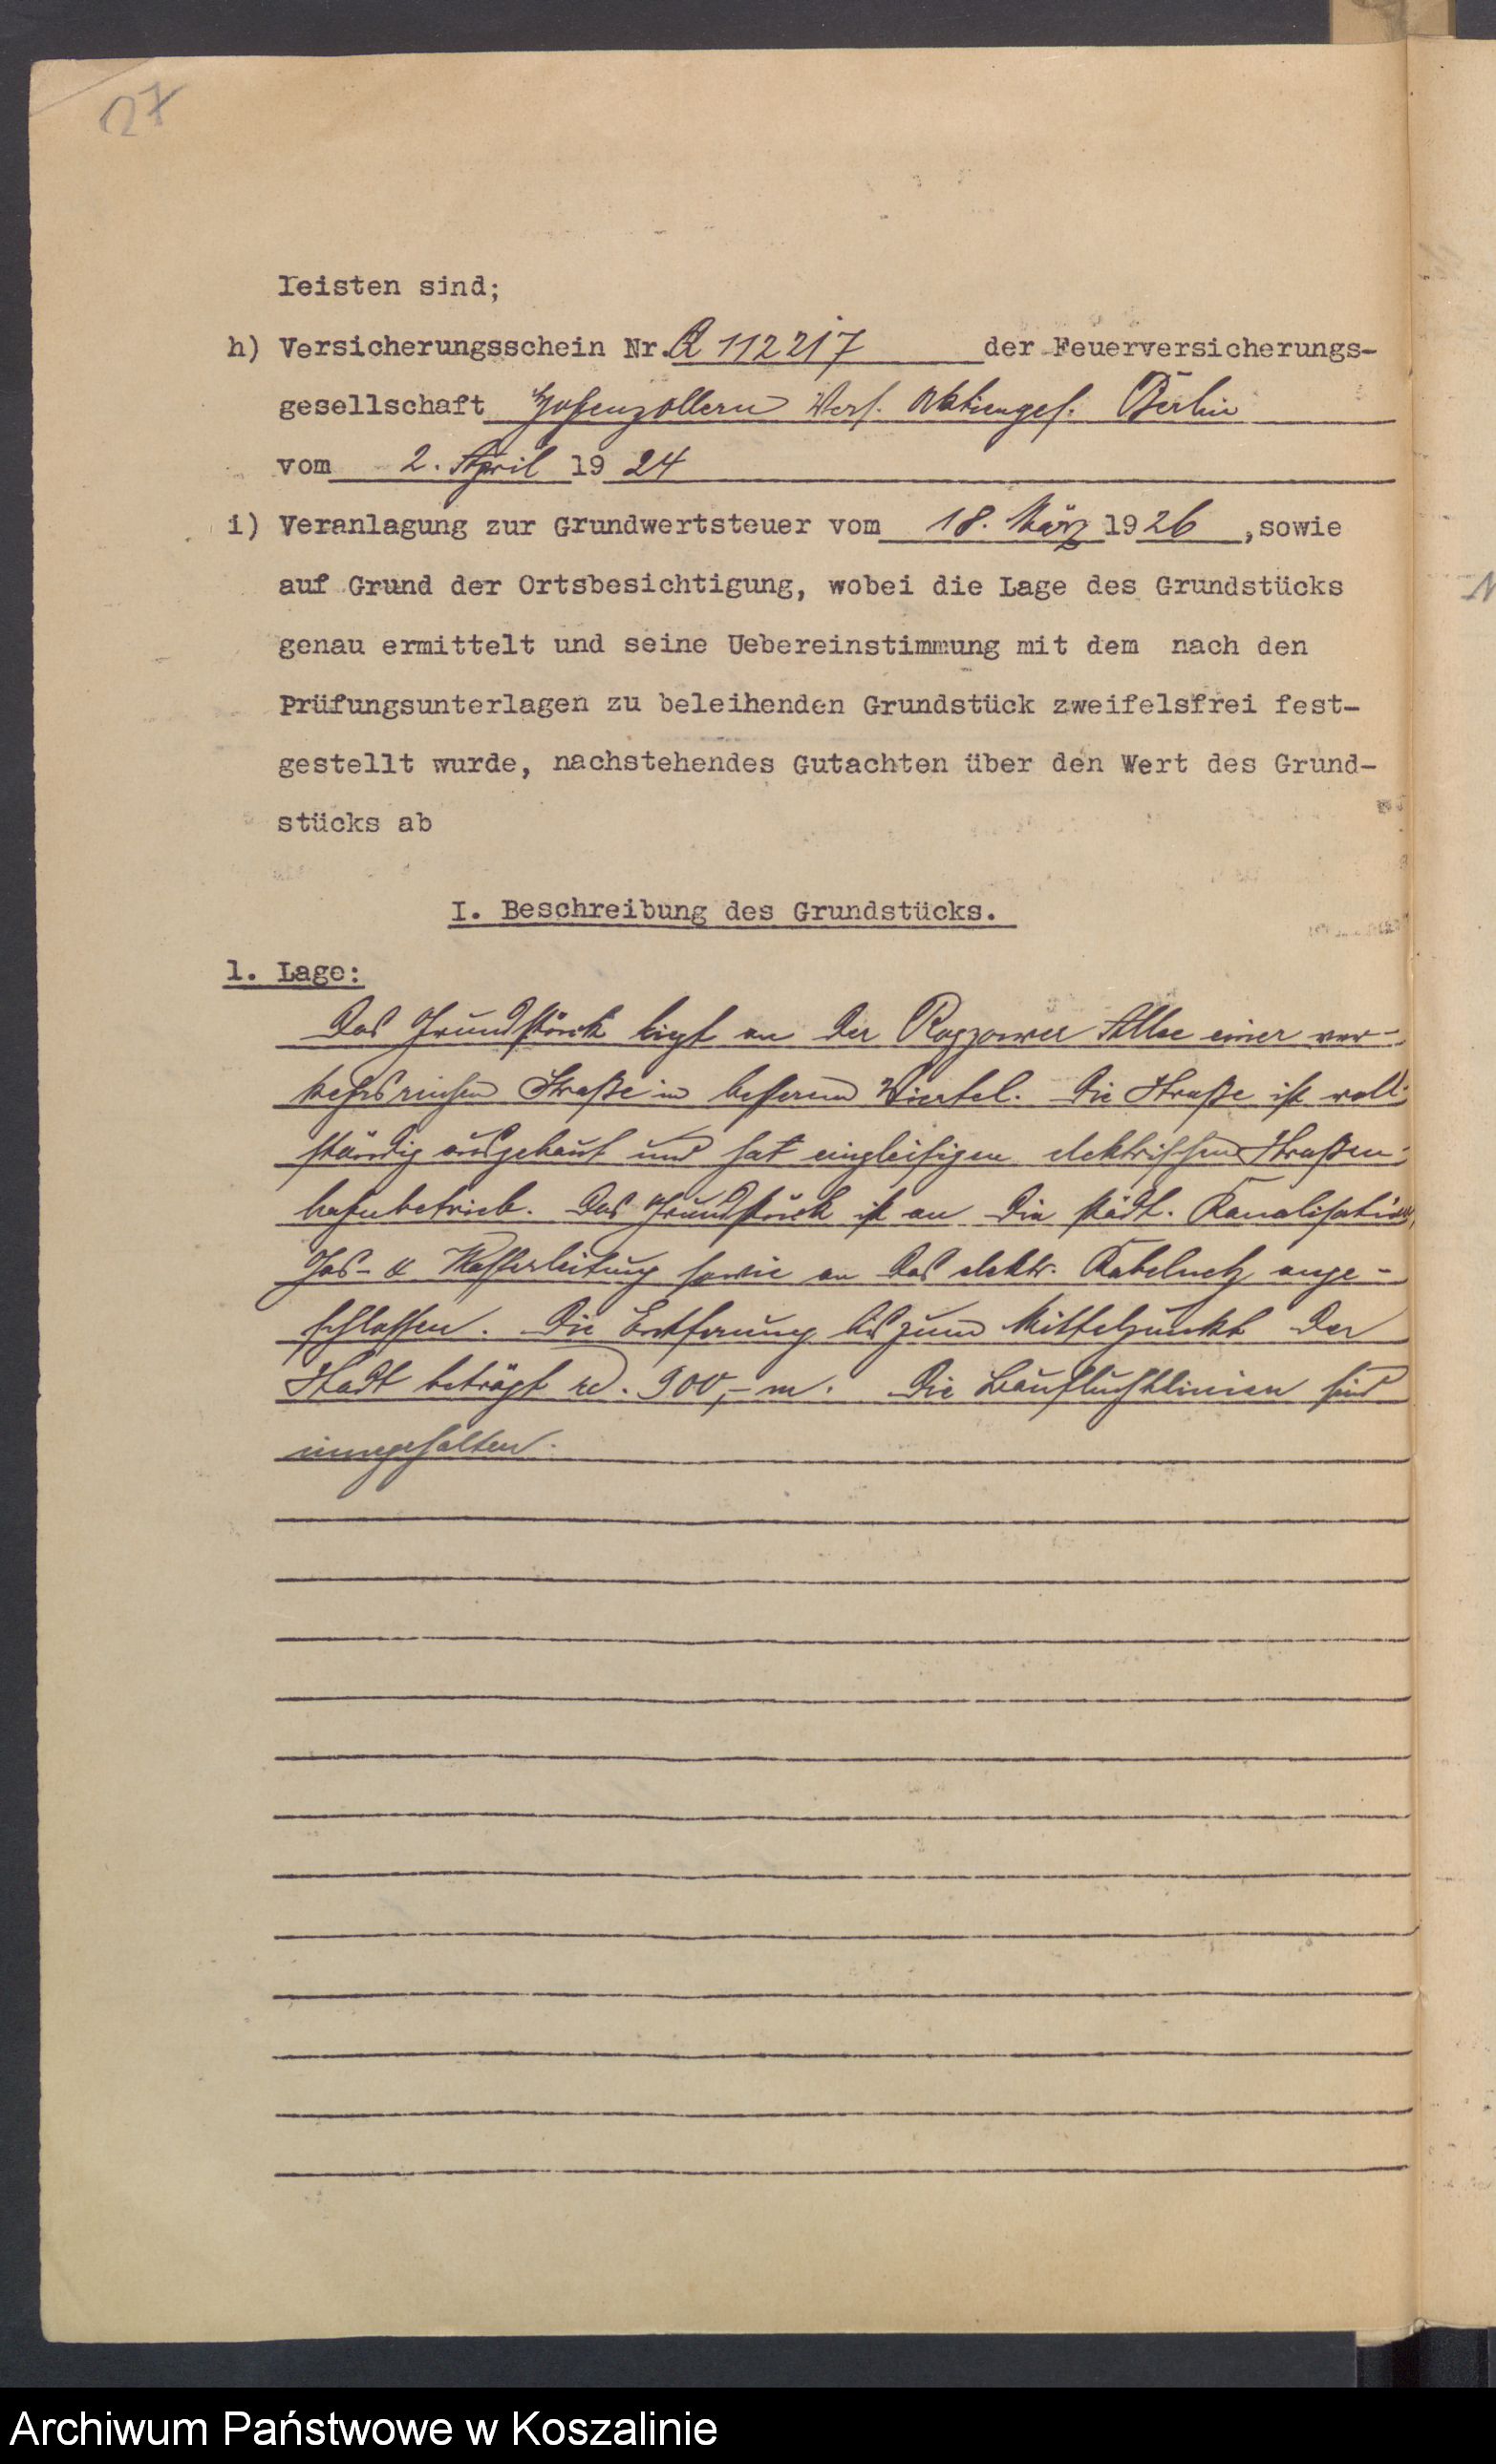 27
leisten sind;
h) Versicherungsschein Nr. A 112217 der Feuerversicherungs-
gesellschaft Hohenzollern Vers. Aktienges. Berlin
vom 2. April 1924
i) Veranlagung zur Grundwertsteuer vom 18. März 1926, sowie
auf Grund der Ortsbesichtigung, wobei die Lage des Grundstücks
genau ermittelt und seine Uebereinstimmung mit dem nach den
Prüfungsunterlagen zu beleihenden Grundstück zweifelsfrei fest-
gestellt wurde, nachstehendes Gutachten über den Wert des Grund-
stücks ab
I. Beschreibung des Grundstücks.
1. Lage:
Das Grundstück liegt an der Rogzower Allee einer ver-
kehrsreichen Straße in besserem Viertel. Die Straße ist voll-
ständig ausgebaut und hat eingleisigen elektrischen Straßen-
bahnbetrieb. Das Grundstück ist an die städt. Kanalisation,
Gas- & Wasserleitung sowie an das elektr. Kabelnetz ange-
schlossen. Die Entfernung bis zum Mittelpunkt der
Stadt beträgt rd. 900,- m. Die Baufluchtlinien sind
innegehalten.
Archiwum Państwowe w Koszalinie